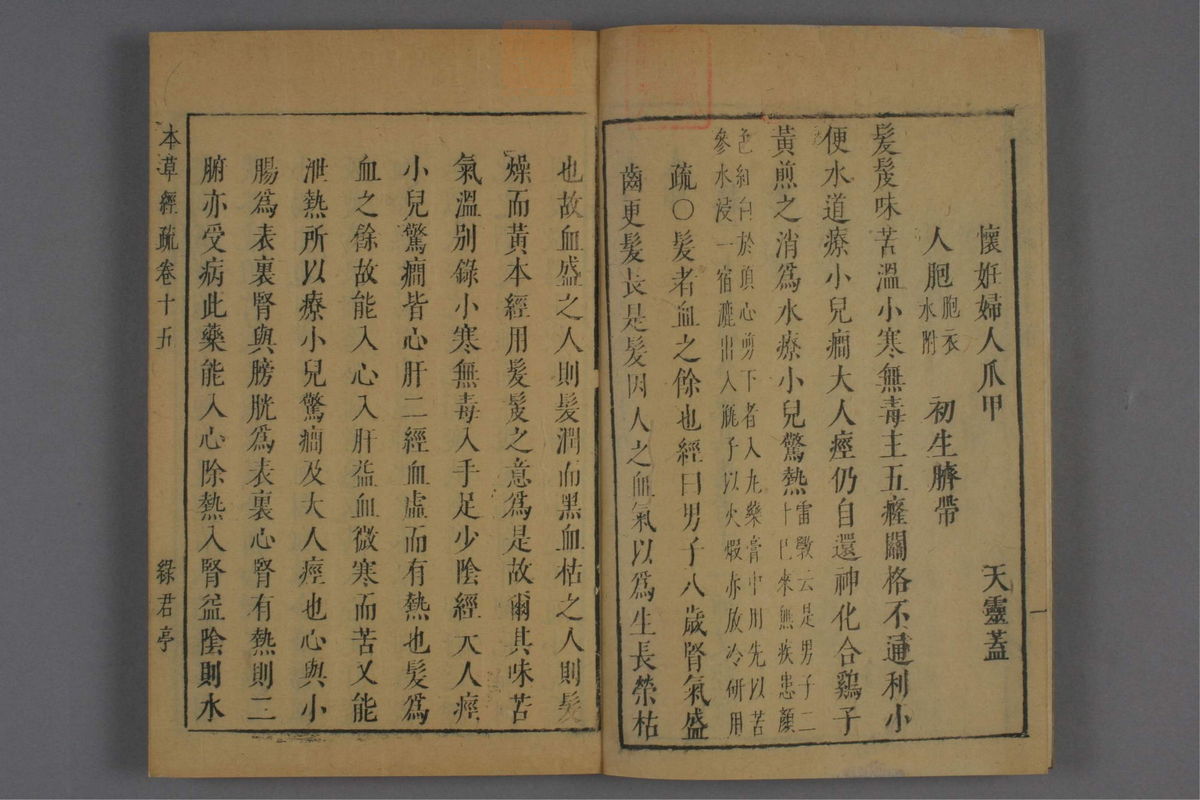 懷妊婦人爪甲 天靈蓋
人胞 胞衣水附 初生臍帶
髮髲味苦溫小寒無毒主五癃關格不通利小
便水道療小兒癇大人痓仍自還神化合鷄子
黃煎之消爲水療小兒驚熱 雷斆云是男子二十巳來無疾患顏
色紅白於頂心剪下者入丸藥膏中用先以苦
參水浸一宿漉出入甁子以火煆赤放冷研用
疏〇髮者血之餘也經曰男子八歲腎氣盛
齒更髮長是髮因人之血氣以爲生長榮枯
也故血盛之人則髮潤而黑血枯之人則髮
燥而黃本經用髮髲之意爲是故爾其味苦
氣溫別錄小寒無毒入手足少陰經大人痓
小兒驚癇皆心肝二經血虛而有熱也髮爲
血之餘故能入心入肝益血微寒而苦又能
泄熱所以療小兒驚癇及大人痓也心與小
腸爲表裏腎與膀胱爲表裏心腎有熱則二
腑亦受病此藥能入心除熱入腎益陰則水
本草經疏卷十五 綠君亭